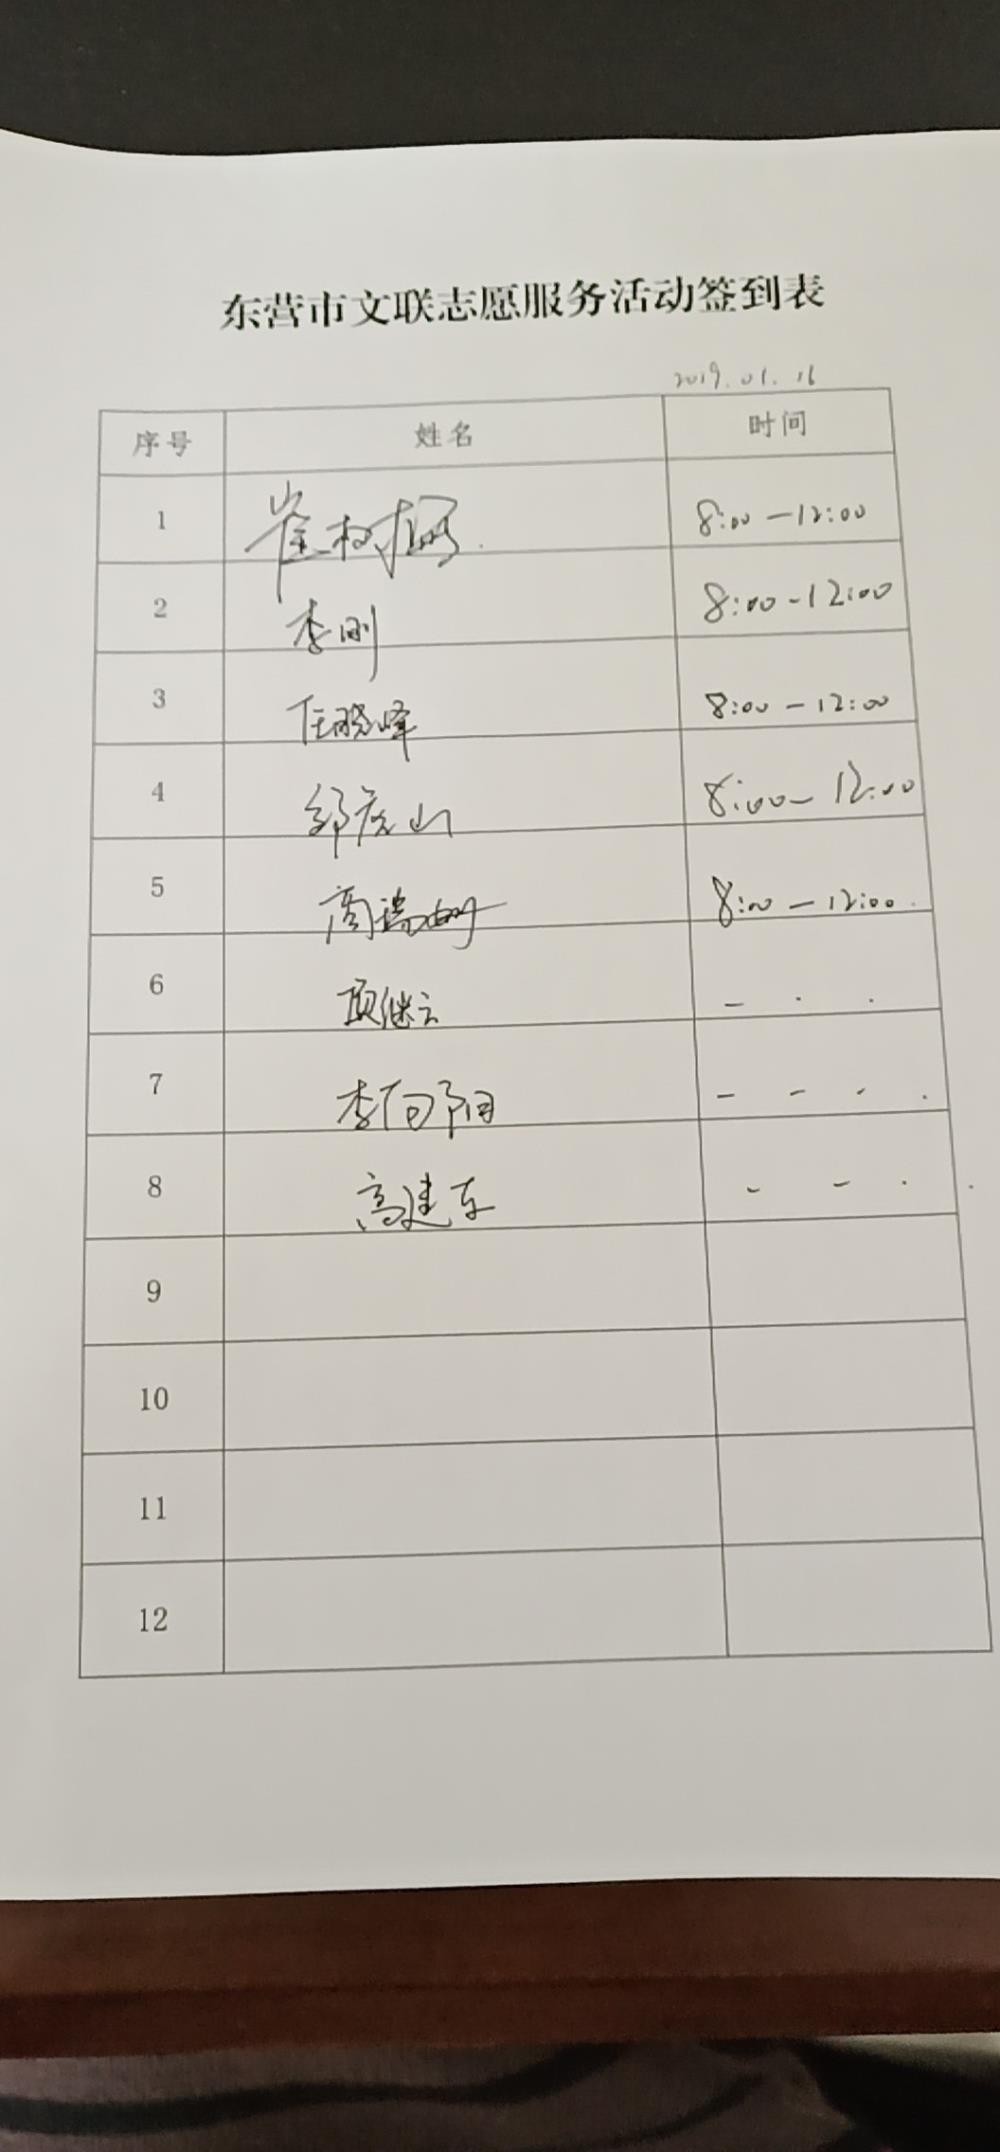 东营市文联志愿服务活动签到表
2019.01.16
序号 姓名 时间
1 崔树 8:00—12:00
2 李刚 8:00-12:00
3 任晓峰 8:00—12:00
4 山 8:00—12:00
5 周瑞 8:00—12:00.
6 项继云 - · ·
7 李向阳 - - - ·
8 高建东 - - · ·
9
10
11
12